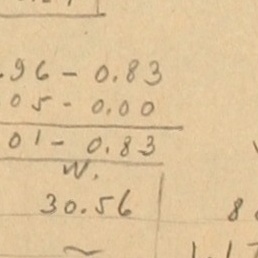 .96 - 0.83
05 - 0.00
01 - 0.83
W.
30.56
8